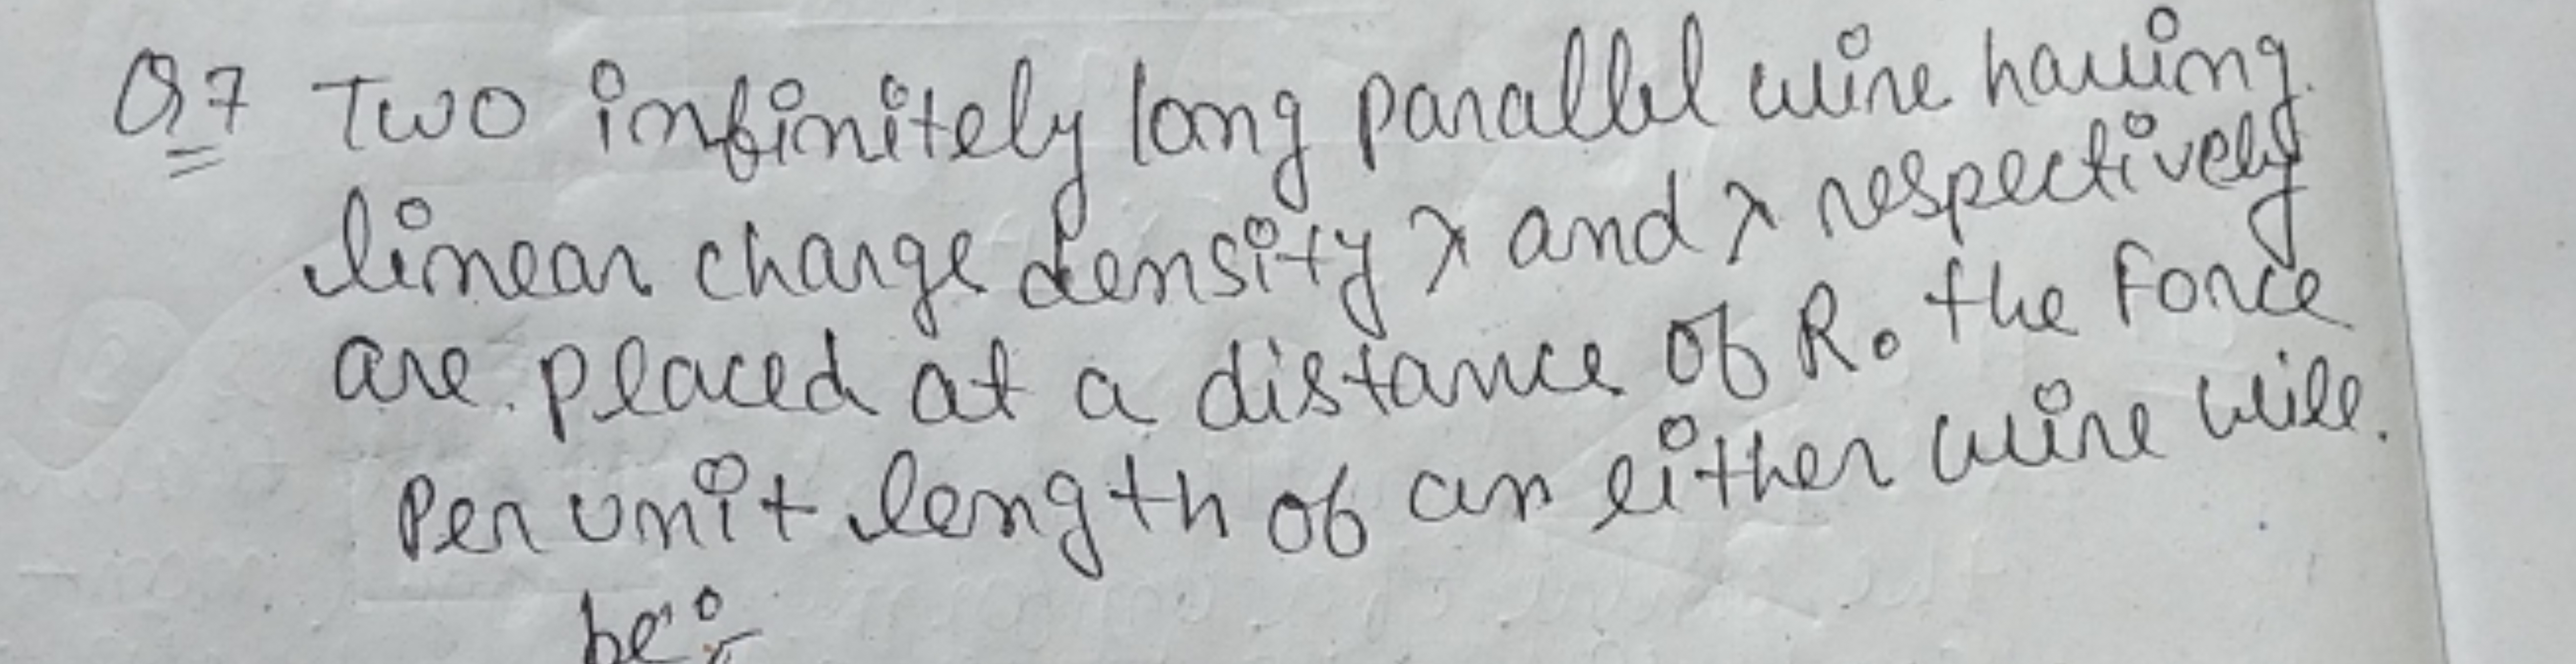 Q7 Two infinitely long parallel wire having
linear charge density λ and λ respectively
are placed at a distance of R. the force
Per unit length of an either wire will.
be: